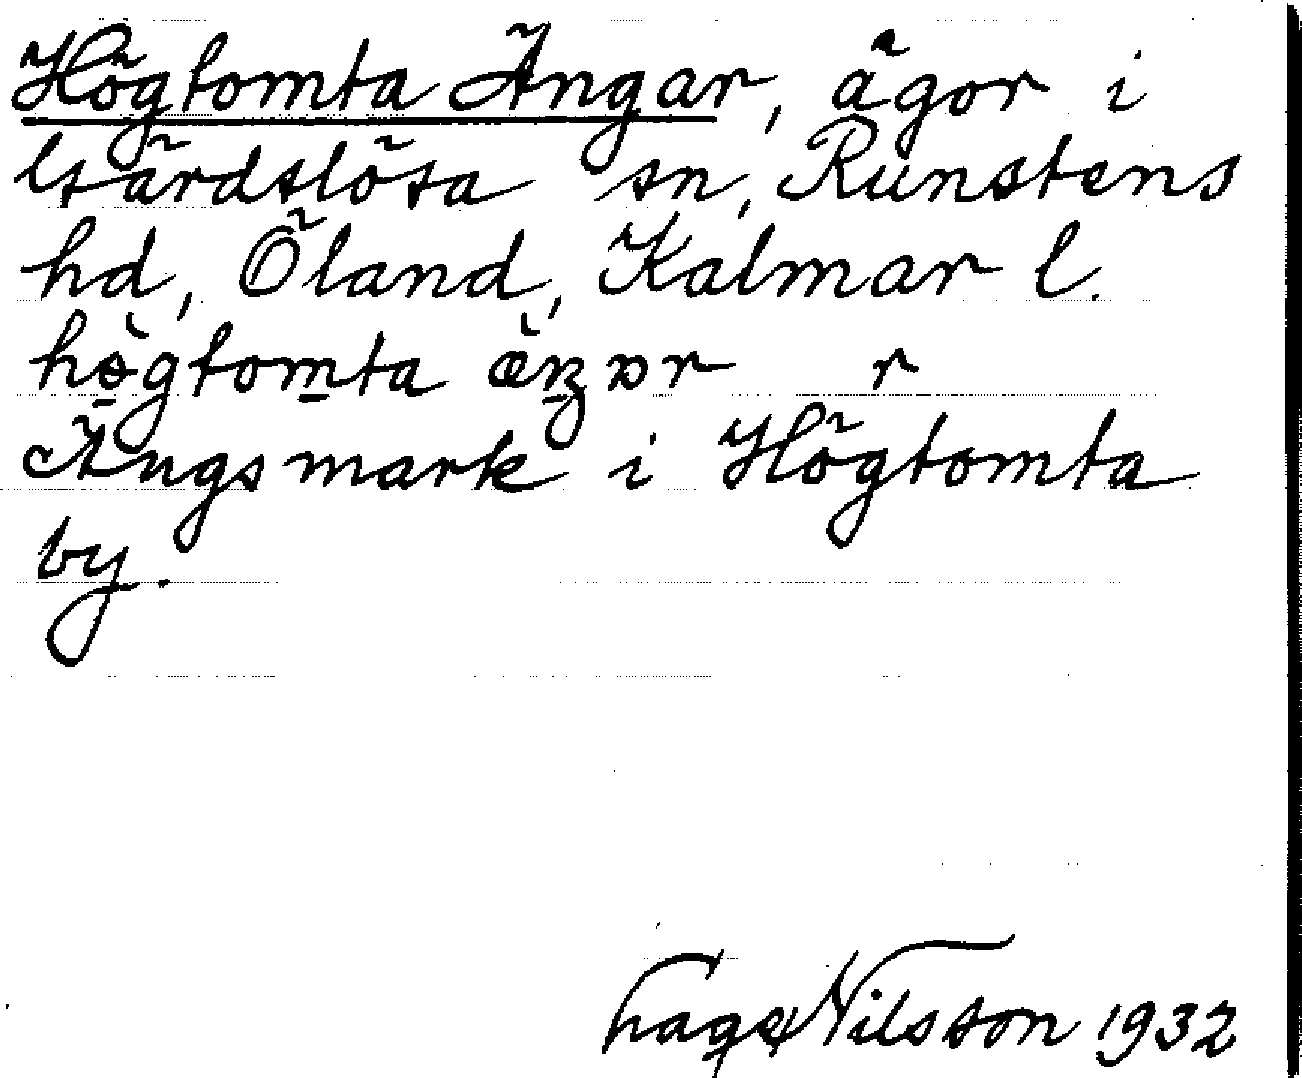 Högtomta Ängar, ägor i
Gärdslösa sn, Runstens
hd, Öland, Kalmar l.
hö̀gtom̱ta æ̀ŋar r
Ängsmark i Högtomta
by.
Nilsson 1932